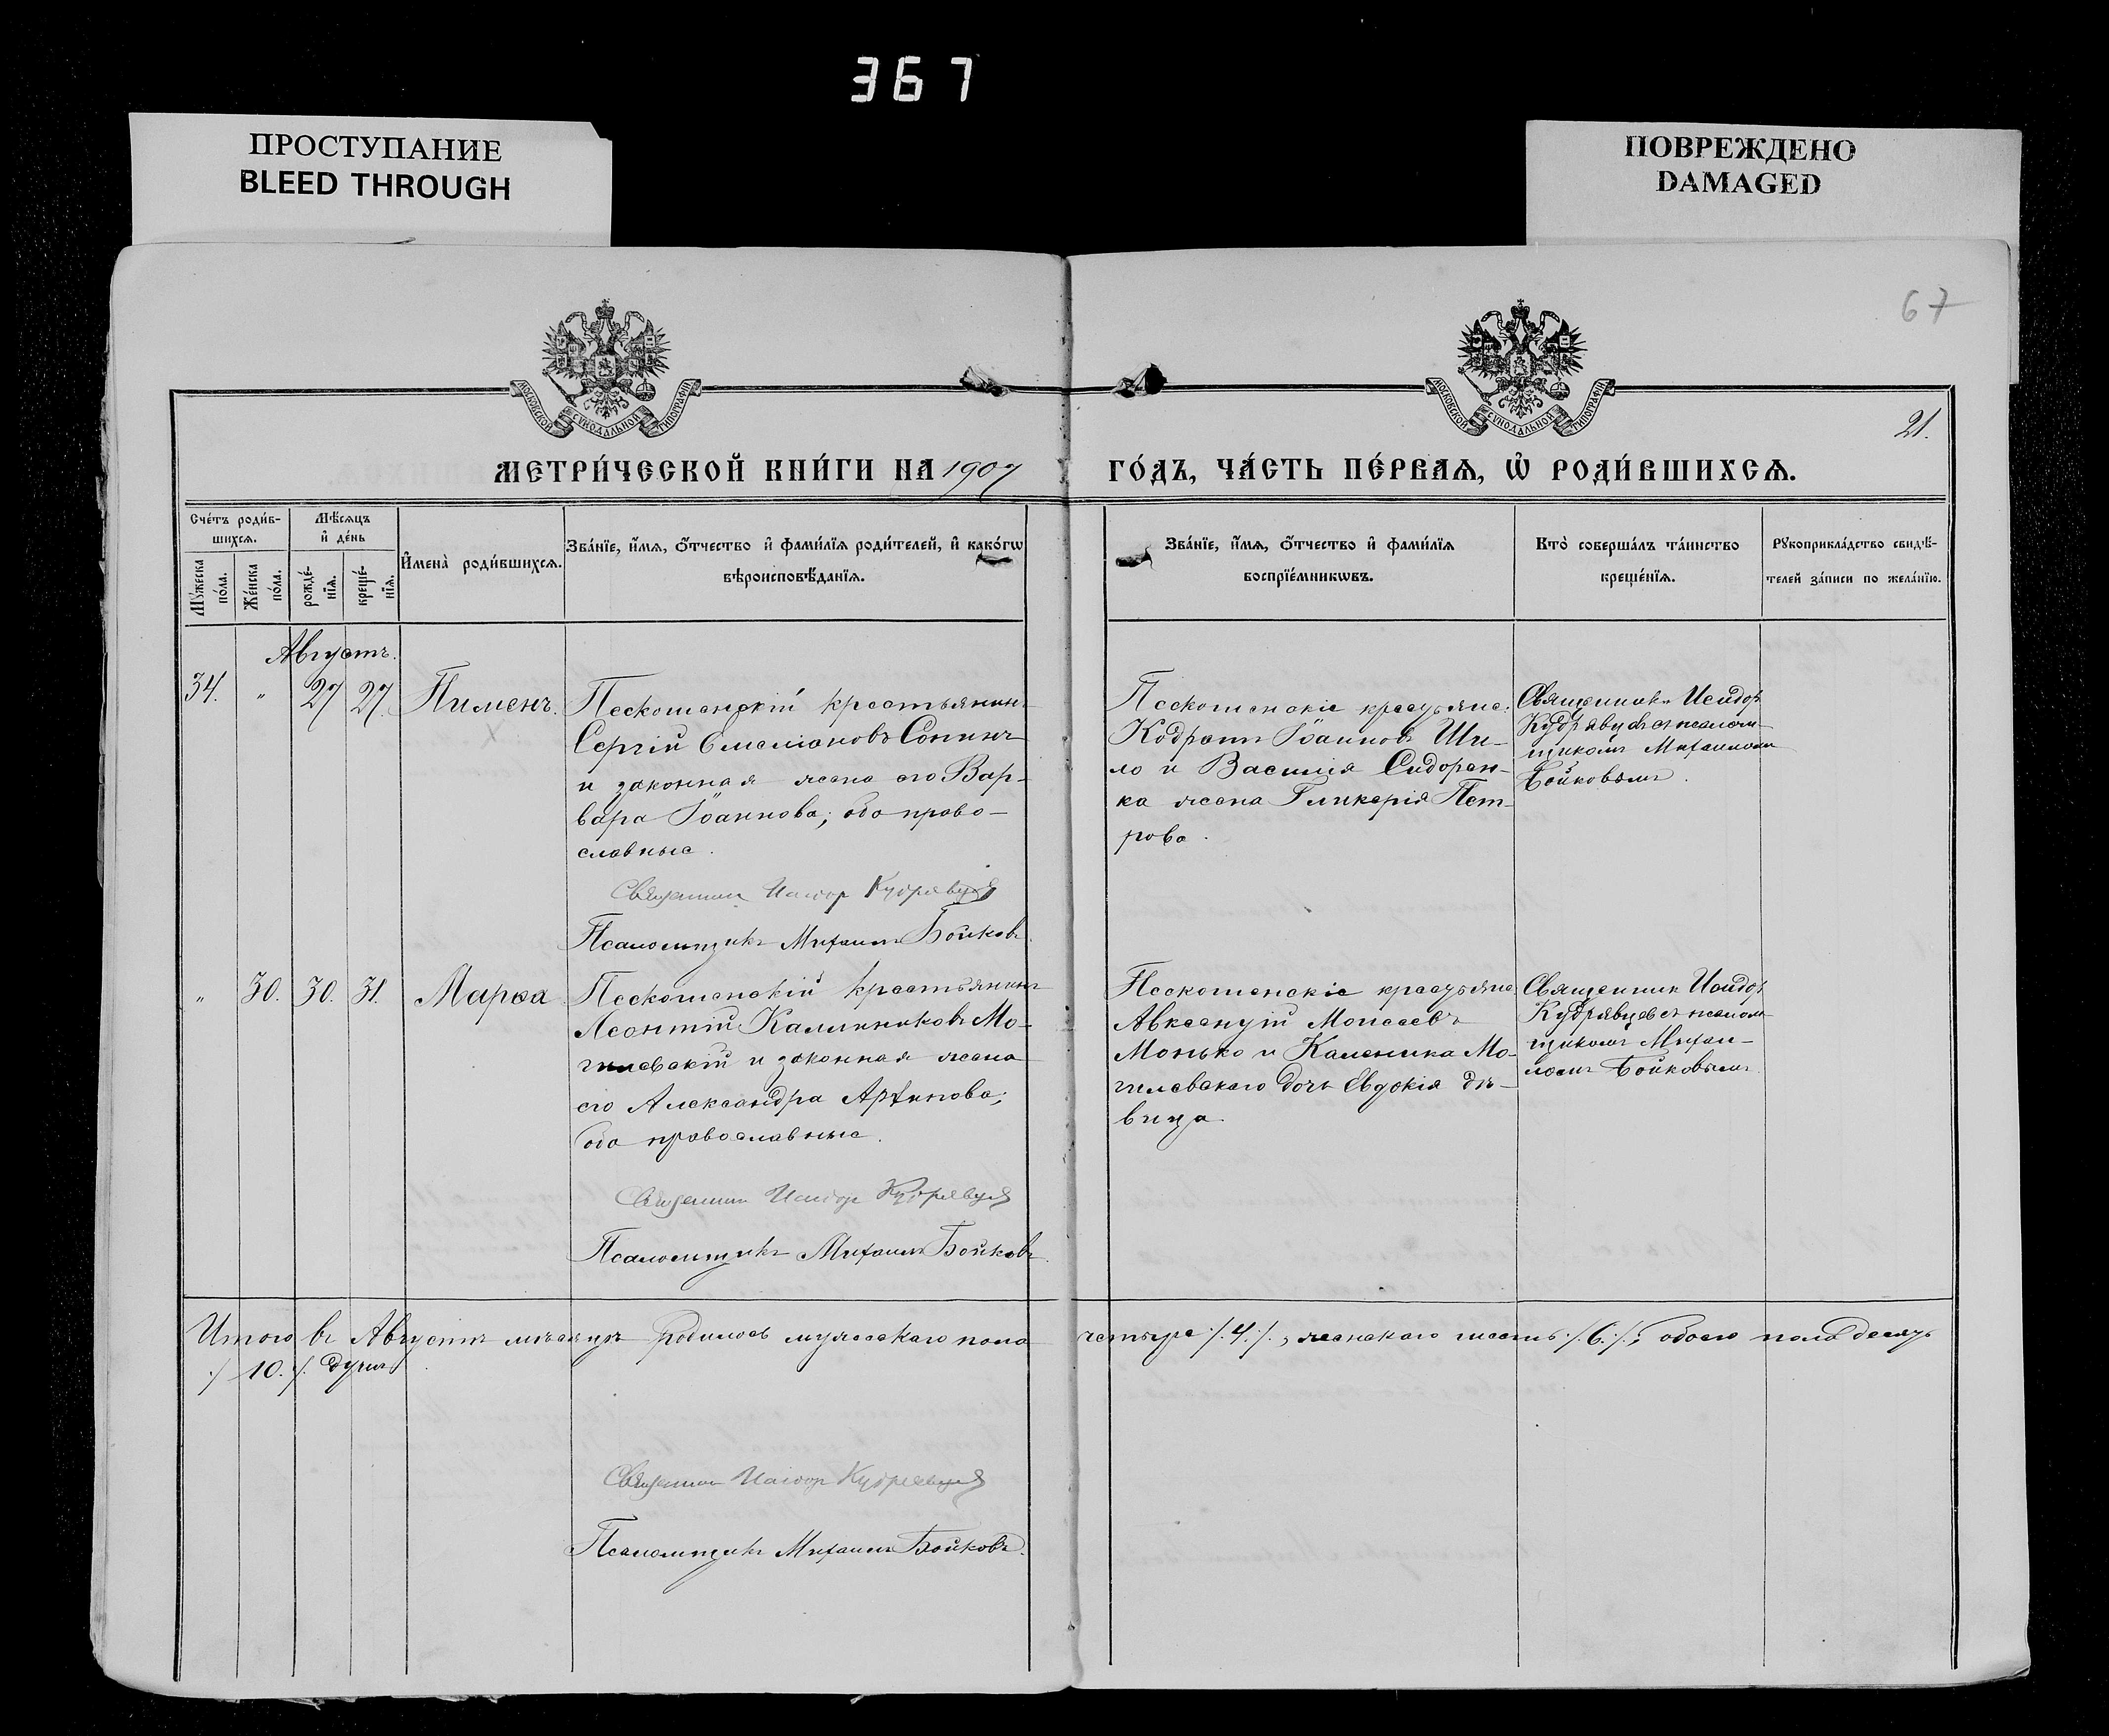 367
ПРОСТУПАНИЕ
BLEED THROUGH
ПОВРЕЖДЕНО
DAMAGED
67
МОСКОВСКОЙ СѴНОДАЛЬНОЙ ТИПОГРАФІИ
МОСКОВСКОЙ СѴНОДАЛЬНОЙ ТИПОГРАФІИ
21.
МЕТРИ́ЧЕСКОЙ КНИ́ГИ НА 1907
ГО́ДЪ, ЧА́СТЬ ПЕ́РВАѦ, Ѡ҆ РОДИ́ВШИХСѦ.
Сче́тъ роди́в-
шихсѧ.
Мѣ́сѧцъ
и҆ де́нь
Мꙋ́жеска
по́ла.
Же́нска
по́ла.
рожде́-
нїѧ.
креще́-
нїѧ.
И҆мена̀ роди́вшихсѧ.
Зва́нїе, и҆́мѧ, ѻ҆́тчество и҆ фами́лїѧ роди́телей, и҆ како́гѡ
вѣроисповѣ́данїѧ.
Зва́нїе, и҆́мѧ, ѻ҆́тчество и҆ фами́лїѧ
воспрїе́мникѡвъ.
Кто̀ соверша́лъ та́инство
креще́нїѧ.
Рꙋкоприкла́дство свидѣ́-
телей за́писи по жела́нїю.
Августъ.
34. " 27 27. Пименъ.
Пескошенскій крестьянинъ
Сергій Омеліановъ Сонинъ
и законная жена его Вар-
вара Іоаннова; оба право-
славные.
Священник Исидор Кудрявцев
Псаломщикъ Михаилъ Бойковъ
Пескошенскіе крестьяне:
Кодратъ Іоанновъ Ши-
ло и Василія Сидорен-
ка жена Гликерія Пет-
рова.
Священникъ Исидоръ
Кудрявцевъ съ псалом-
щикомъ Михаиломъ
Бойковымъ.
" 30. 30. 31. Марѳа
Пескошенскій крестьянинъ
Леонтій Каллиниковъ Мо-
гилевскій и законная жена
его Александра Архипова;
оба православные.
Священник Исидор Кудрявцев
Псаломщикъ Михаилъ Бойковъ.
Пескошенскіе крестьяне
Авксентій Моисеевъ
Монько и Калиника Мо-
гилевскаго дочь Евдокія дѣ-
вица.
Священник Исидоръ
Кудрявцевъ съ псалом-
щикомъ Михаи-
ломъ Бойковымъ.
Итого въ Августѣ мѣсяцѣ родилось мужескаго пола четыре /.4./., женскаго шесть /.6./.; обоего пола десять
./ 10. /. душъ.
Священник Исидор Кудрявцев
Псаломщикъ Михаилъ Бойковъ.